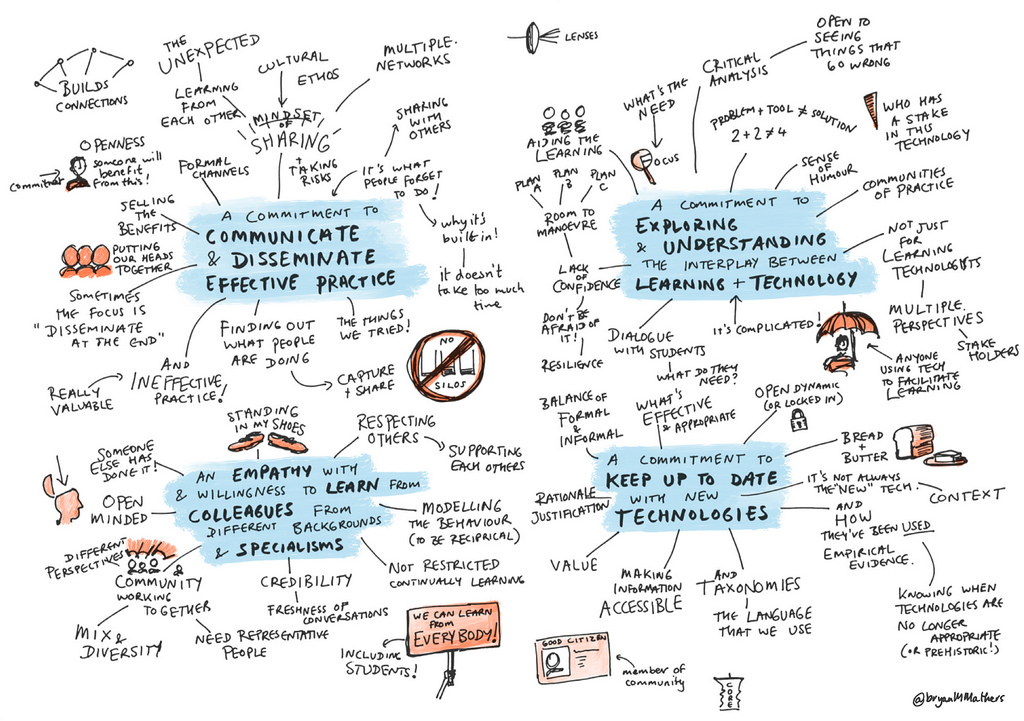 BUILDS
CONNECTIONS
THE
UNEXPECTED
LEARNING
FROM
EACH OTHER
CULTURAL
ETHOS
MULTIPLE.
NETWORKS
MINDSET
OF
SHARING
+
TAKING
RISKS
SHARING
WITH
OTHERS
IT'S WHAT
PEOPLE FORGET
TO DO!
why it's
built in!
it doesn't
take too much
time
OPENNESS
someone will
benefit
from this!
committer
FORMAL
CHANNELS
SELLING
THE
BENEFITS
PUTTING
OUR HEADS
TOGETHER
SOMETIMES
THE FOCUS IS
"DISSEMINATE
AT THE END"
A COMMITMENT TO
COMMUNICATE
& DISSEMINATE
EFFECTIVE PRACTICE
AND
INEFFECTIVE
PRACTICE!
REALLY
VALUABLE
FINDING OUT
WHAT PEOPLE
ARE DOING
CAPTURE
+ SHARE
THE THINGS
WE TRIED!
NO
SILOS
LENSES
WHAT'S THE
NEED
FOCUS
CRITICAL
ANALYSIS
OPEN TO
SEEING
THINGS THAT
GO WRONG
PROBLEM + TOOL ≠ SOLUTION
2+2≠4
WHO HAS
A STAKE
IN THIS
TECHNOLOGY
SENSE
OF
HUMOUR
COMMUNITIES
OF PRACTICE
NOT JUST
FOR
LEARNING
TECHNOLOGISTS
MULTIPLE.
PERSPECTIVES
STAKE
HOLDERS
AIDING THE
LEARNING
PLAN
A
PLAN
B
PLAN
C
ROOM TO
MANOEVRE
LACK
OF
CONFIDENCE
DON'T BE
AFRAID OF
IT!
RESILIENCE
A COMMITMENT TO
EXPLORING
& UNDERSTANDING
THE INTERPLAY BETWEEN
LEARNING + TECHNOLOGY
DIALOGUE
WITH STUDENTS
WHAT DO THEY
NEED?
IT'S COMPLICATED!
ANYONE
USING TECH
TO FACILITATE
LEARNING
STANDING
IN MY SHOES
RESPECTING
OTHERS
SUPPORTING
EACH OTHERS
SOMEONE
ELSE HAS
DONE IT!
OPEN
MINDED
DIFFERENT
PERSPECTIVES
AN EMPATHY WITH
& WILLINGNESS TO LEARN FROM
COLLEAGUES FROM
DIFFERENT BACKGROUNDS
& SPECIALISMS
MODELLING
THE BEHAVIOUR
(TO BE RECIPRICAL)
NOT RESTRICTED
CONTINUALLY LEARNING
COMMUNITY
WORKING
TOGETHER
MIX &
DIVERSITY
NEED REPRESENTATIVE
PEOPLE
CREDIBILITY
FRESHNESS OF
CONVERSATIONS
WE CAN LEARN
FROM
EVERYBODY!
INCLUDING
STUDENTS!
BALANCE OF
FORMAL
&
INFORMAL
WHAT'S
EFFECTIVE
& APPROPRIATE
OPEN DYNAMIC
(OR LOCKED IN)
BREAD
+
BUTTER
A COMMITMENT TO
KEEP UP TO DATE
WITH NEW
TECHNOLOGIES
RATIONALE
JUSTIFICATION
VALUE
IT'S NOT ALWAYS
THE "NEW" TECH.
CONTEXT
AND
HOW
THEY'VE BEEN USED
EMPIRICAL
EVIDENCE.
KNOWING WHEN
TECHNOLOGIES ARE
NO LONGER
APPROPRIATE
(OR PREHISTORIC!)
MAKING
INFORMATION
ACCESSIBLE
AND
TAXONOMIES
THE LANGUAGE
THAT WE USE
GOOD CITIZEN
member of
community
CORE
@bryanMMathers